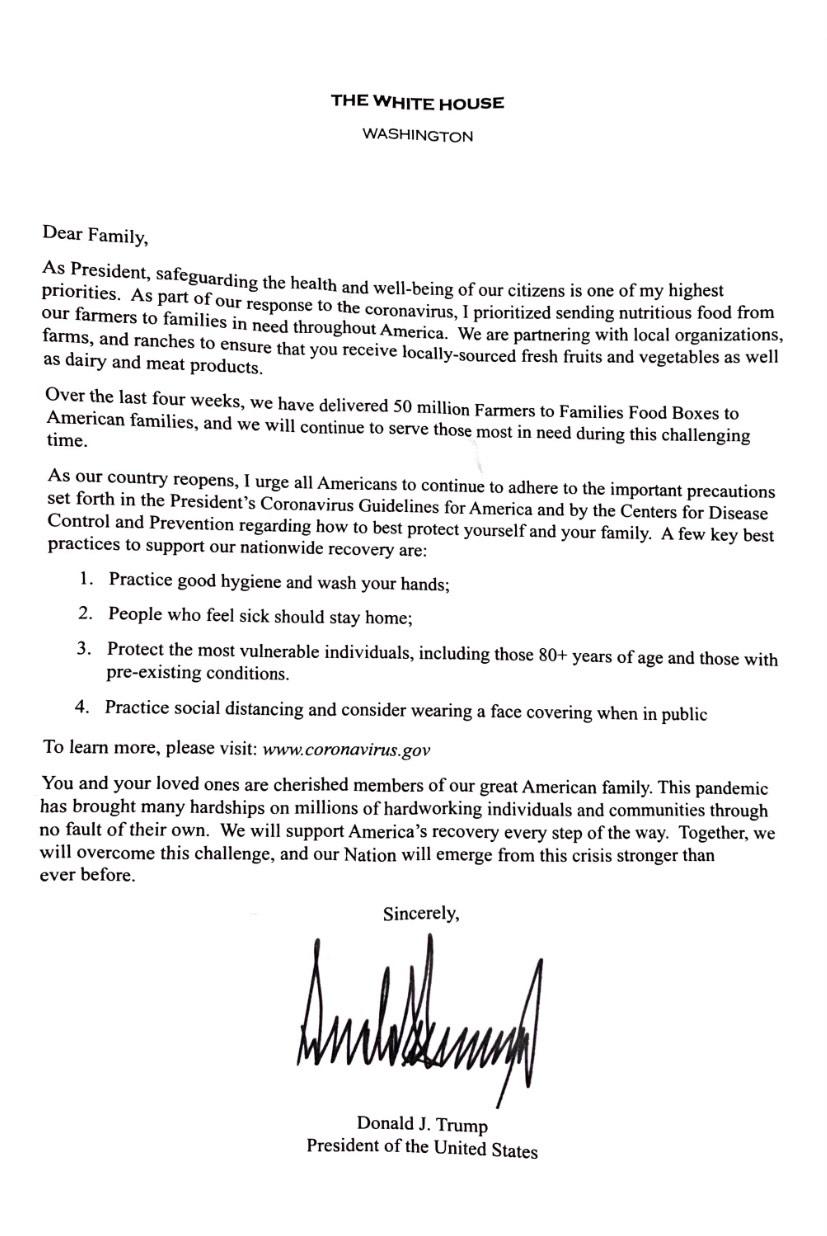 THE WHITE HOUSE
WASHINGTON
Dear Family,
As President, safeguarding the health and well-being of our citizens is one of my highest
priorities. As part of our response to the coronavirus, I prioritized sending nutritious food from
our farmers to families in need throughout America. We are partnering with local organizations,
farms, and ranches to ensure that you receive locally-sourced fresh fruits and vegetables as well
as dairy and meat products.
Over the last four weeks, we have delivered 50 million Farmers to Families Food Boxes to
American families, and we will continue to serve those most in need during this challenging
time.
As our country reopens, I urge all Americans to continue to adhere to the important precautions
set forth in the President's Coronavirus Guidelines for America and by the Centers for Disease
Control and Prevention regarding how to best protect yourself and your family. A few key best
practices to support our nationwide recovery are:
1. Practice good hygiene and wash your hands;
2. People who feel sick should stay home;
3. Protect the most vulnerable individuals, including those 80+ years of age and those with
pre-existing conditions.
4. Practice social distancing and consider wearing a face covering when in public
To learn more, please visit: www.coronavirus.gov
You and your loved ones are cherished members of our great American family. This pandemic
has brought many hardships on millions of hardworking individuals and communities through
no fault of their own. We will support America's recovery every step of the way. Together, we
will overcome this challenge, and our Nation will emerge from this crisis stronger than
ever before.
Sincerely,
Donald J. Trump
President of the United States